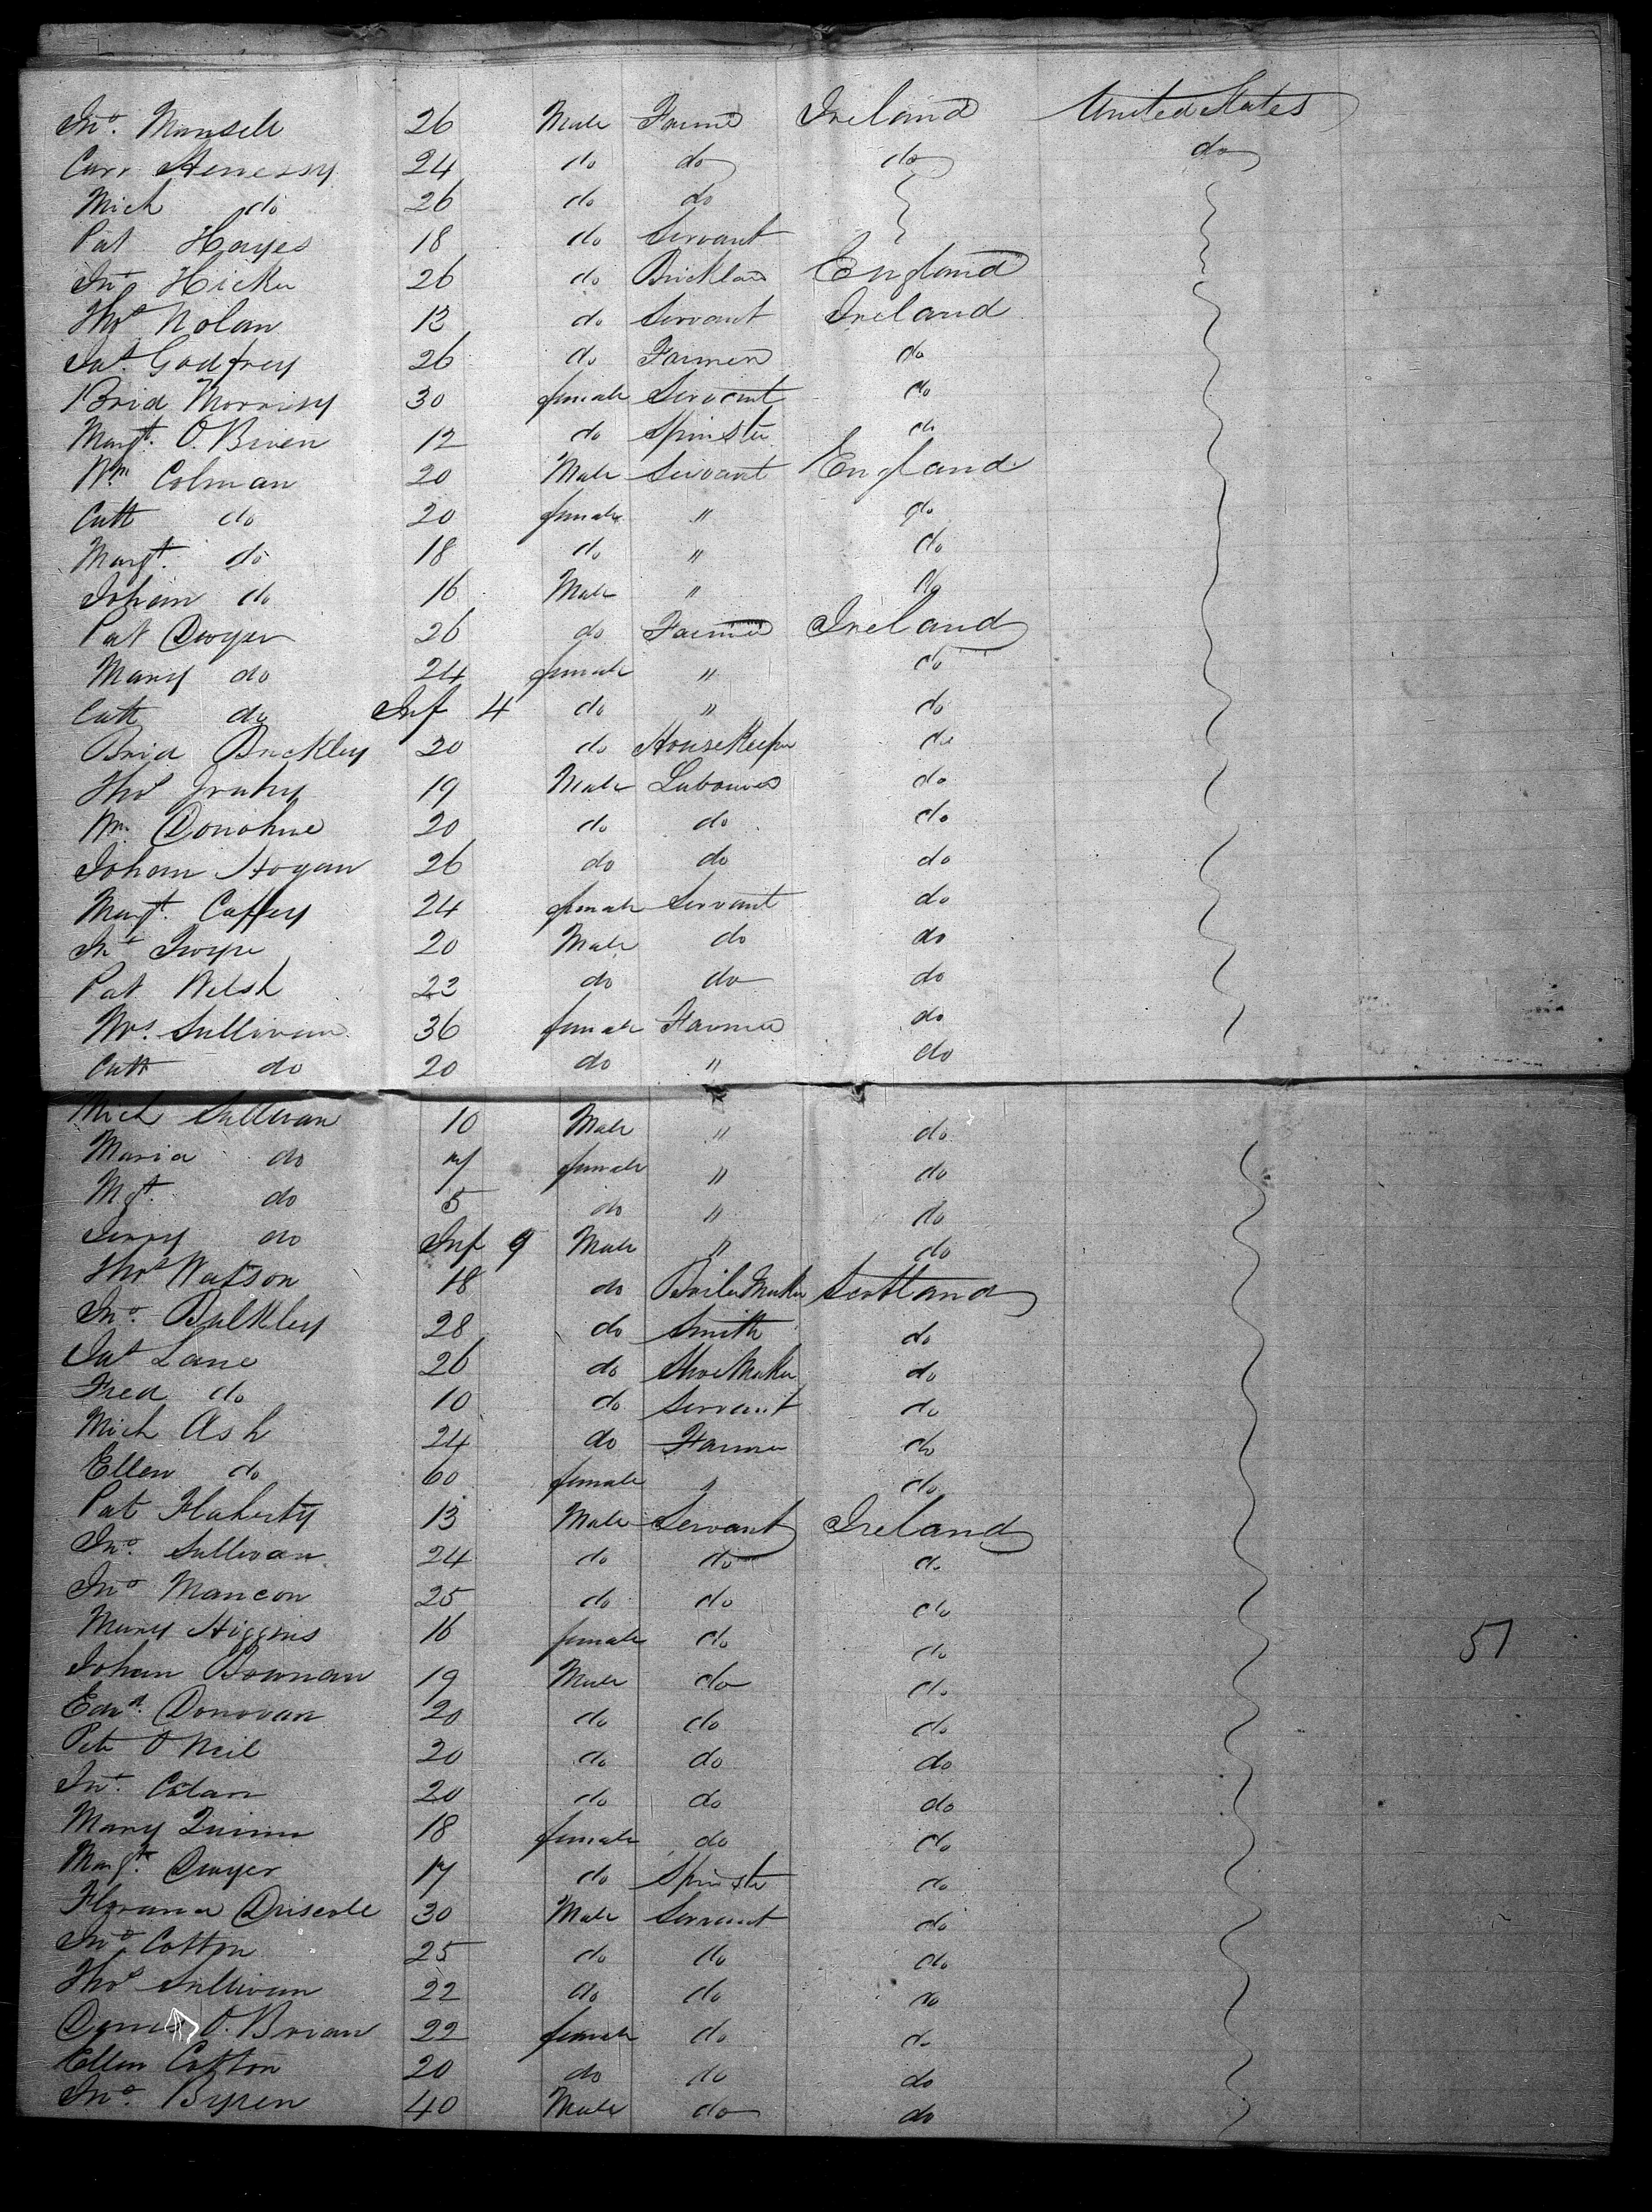 Jno. Mansell 26 Male Farmer Ireland United States
Carr Henessy 24 do do do do
Mich do 26 do do
Pat Hayes 18 do Servant
Jno Hickey 26 do England
Thos Nolan 12 do Servant Ireland
Jas. Godfrey 26 do Farmer do
Brid Morrisy 30 female Servant do
Margt. O.Brien 12 do Spinster do
Wm Colman 20 Male Servant England
Cath do 20 female " do
Margt. do 18 do " do
Johan do 16 Male " do
Pat Dwyer 26 do Farmer Ireland
Mary do 24 female " do
Cath do Inf 4 do " do
Brid Buckley 20 do HouseKeeper do
Thos 19 Male Labourer do
Wm. Donohue 20 do do do
Johan Hogan 26 do do do
Margt. Caffery 24 female Servant do
20 Male do do
Pat Welsh 22 do do do
Mrs. Sullivan 36 female Farmer do
Cath do 20 do " do
Mich Sullivan 10 Male " do
Maria do 7 female " do
Mgt. do 5 do " do
Jerry do Inf 9 Male " do
Thos Watson 18 do BoilerMaker Scotland
Jno. Bulkley 28 do Smith do
Jas Lane 26 do ShoeMaker do
Fred do 10 do Servant do
Mich Ash 24 do Farmer do
Ellen do 60 female " do
Pat Flaherty 13 Male Servant Ireland
Jno. Sullivan 24 do do do
Jno Mancon 25 do do do
Mary Higgins 16 female do do
51
Johan Bownan 19 Male do do
Edwd. Donovan 20 do do do
Pete O Neil 20 do do do
Jno. 20 do do do
Mary Quinn 18 female do do
Margt. Dwyer 17 do Spinster do
Driscole 30 Male Servant do
Jno Cotton 25 do do do
Thos Sullivan 22 do do do
O.Brian 22 female do do
Ellen Cotton 20 do do do
Jno. Byren 40 Male do do